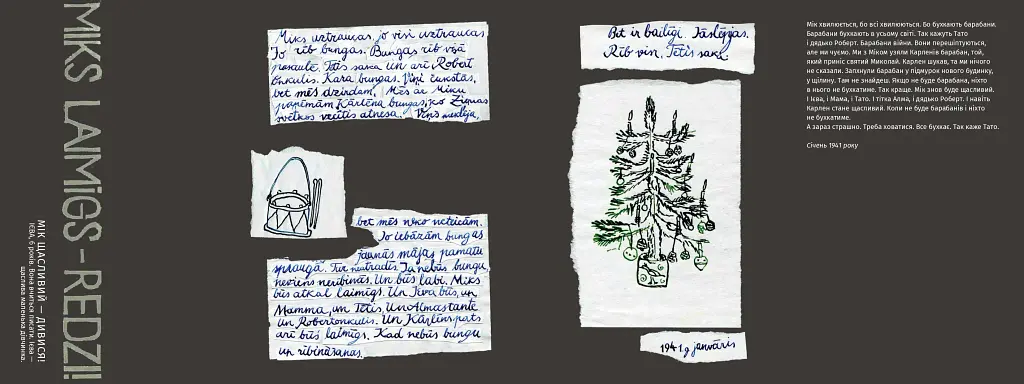 MIKS LAIMĪGS – REDZI!
МІК ЩАСЛИВИЙ — ДИВИСЯ!
ІЄВА, 6 років. Вона вчиться писати. Ієва —
щаслива маленька дівчинка.
Miks uztraucas, jo visi uztraucas.
Jo rīb bungas. Bungas rīb visā
pasaulē. Tētis saka Un arī Robert
onkulis. Kara bungas. Viņi čukstas,
bet mēs dzirdam. Mēs ar Miku
paņēmām Kārlēna bungas, ko Ziemas
svētkos vecītis atnesa. Viņš meklēja,
bet mēs neko neteicām.
Jo iebāzām bungas
jaunās mājas pamatu
spraugā. Tur neatradīs Ja nebūs bungu,
neviens neribinās. Un būs labi. Miks
būs atkal laimīgs. Un Ieva būs, un
Mamma, un Tētis, Un Almastante
un Robertonkulis. Un Kārlīns pats
arī būs laimīgs. Kad nebūs bungu
un rībināšanas.
Bet ir bailīgi. Jāslēpjas.
Rīb viss. Tētis saka
1941.g janvāris
Мік хвилюється, бо всі хвилюються. Бо бухкають барабани.
Барабани бухкають в усьому світі. Так кажуть Тато
і дядько Роберт. Барабани війни. Вони перешіптуються,
але ми чуємо. Ми з Міком узяли Карленів барабан, той,
який приніс святий Миколай. Карлен шукав, та ми нічого
не сказали. Запхнули барабан у підмурок нового будинку,
у щілину. Там не знайдеш. Якщо не буде барабана, ніхто
в нього не бухкатиме. Так краще. Мік знов буде щасливий.
І Ієва, і Мама, і Тато. І тітка Алма, і дядько Роберт. І навіть
Карлен стане щасливий. Коли не буде барабанів і ніхто
не бухкатиме.
А зараз страшно. Треба ховатися. Все бухкає. Так каже Тато.
Січень 1941 року